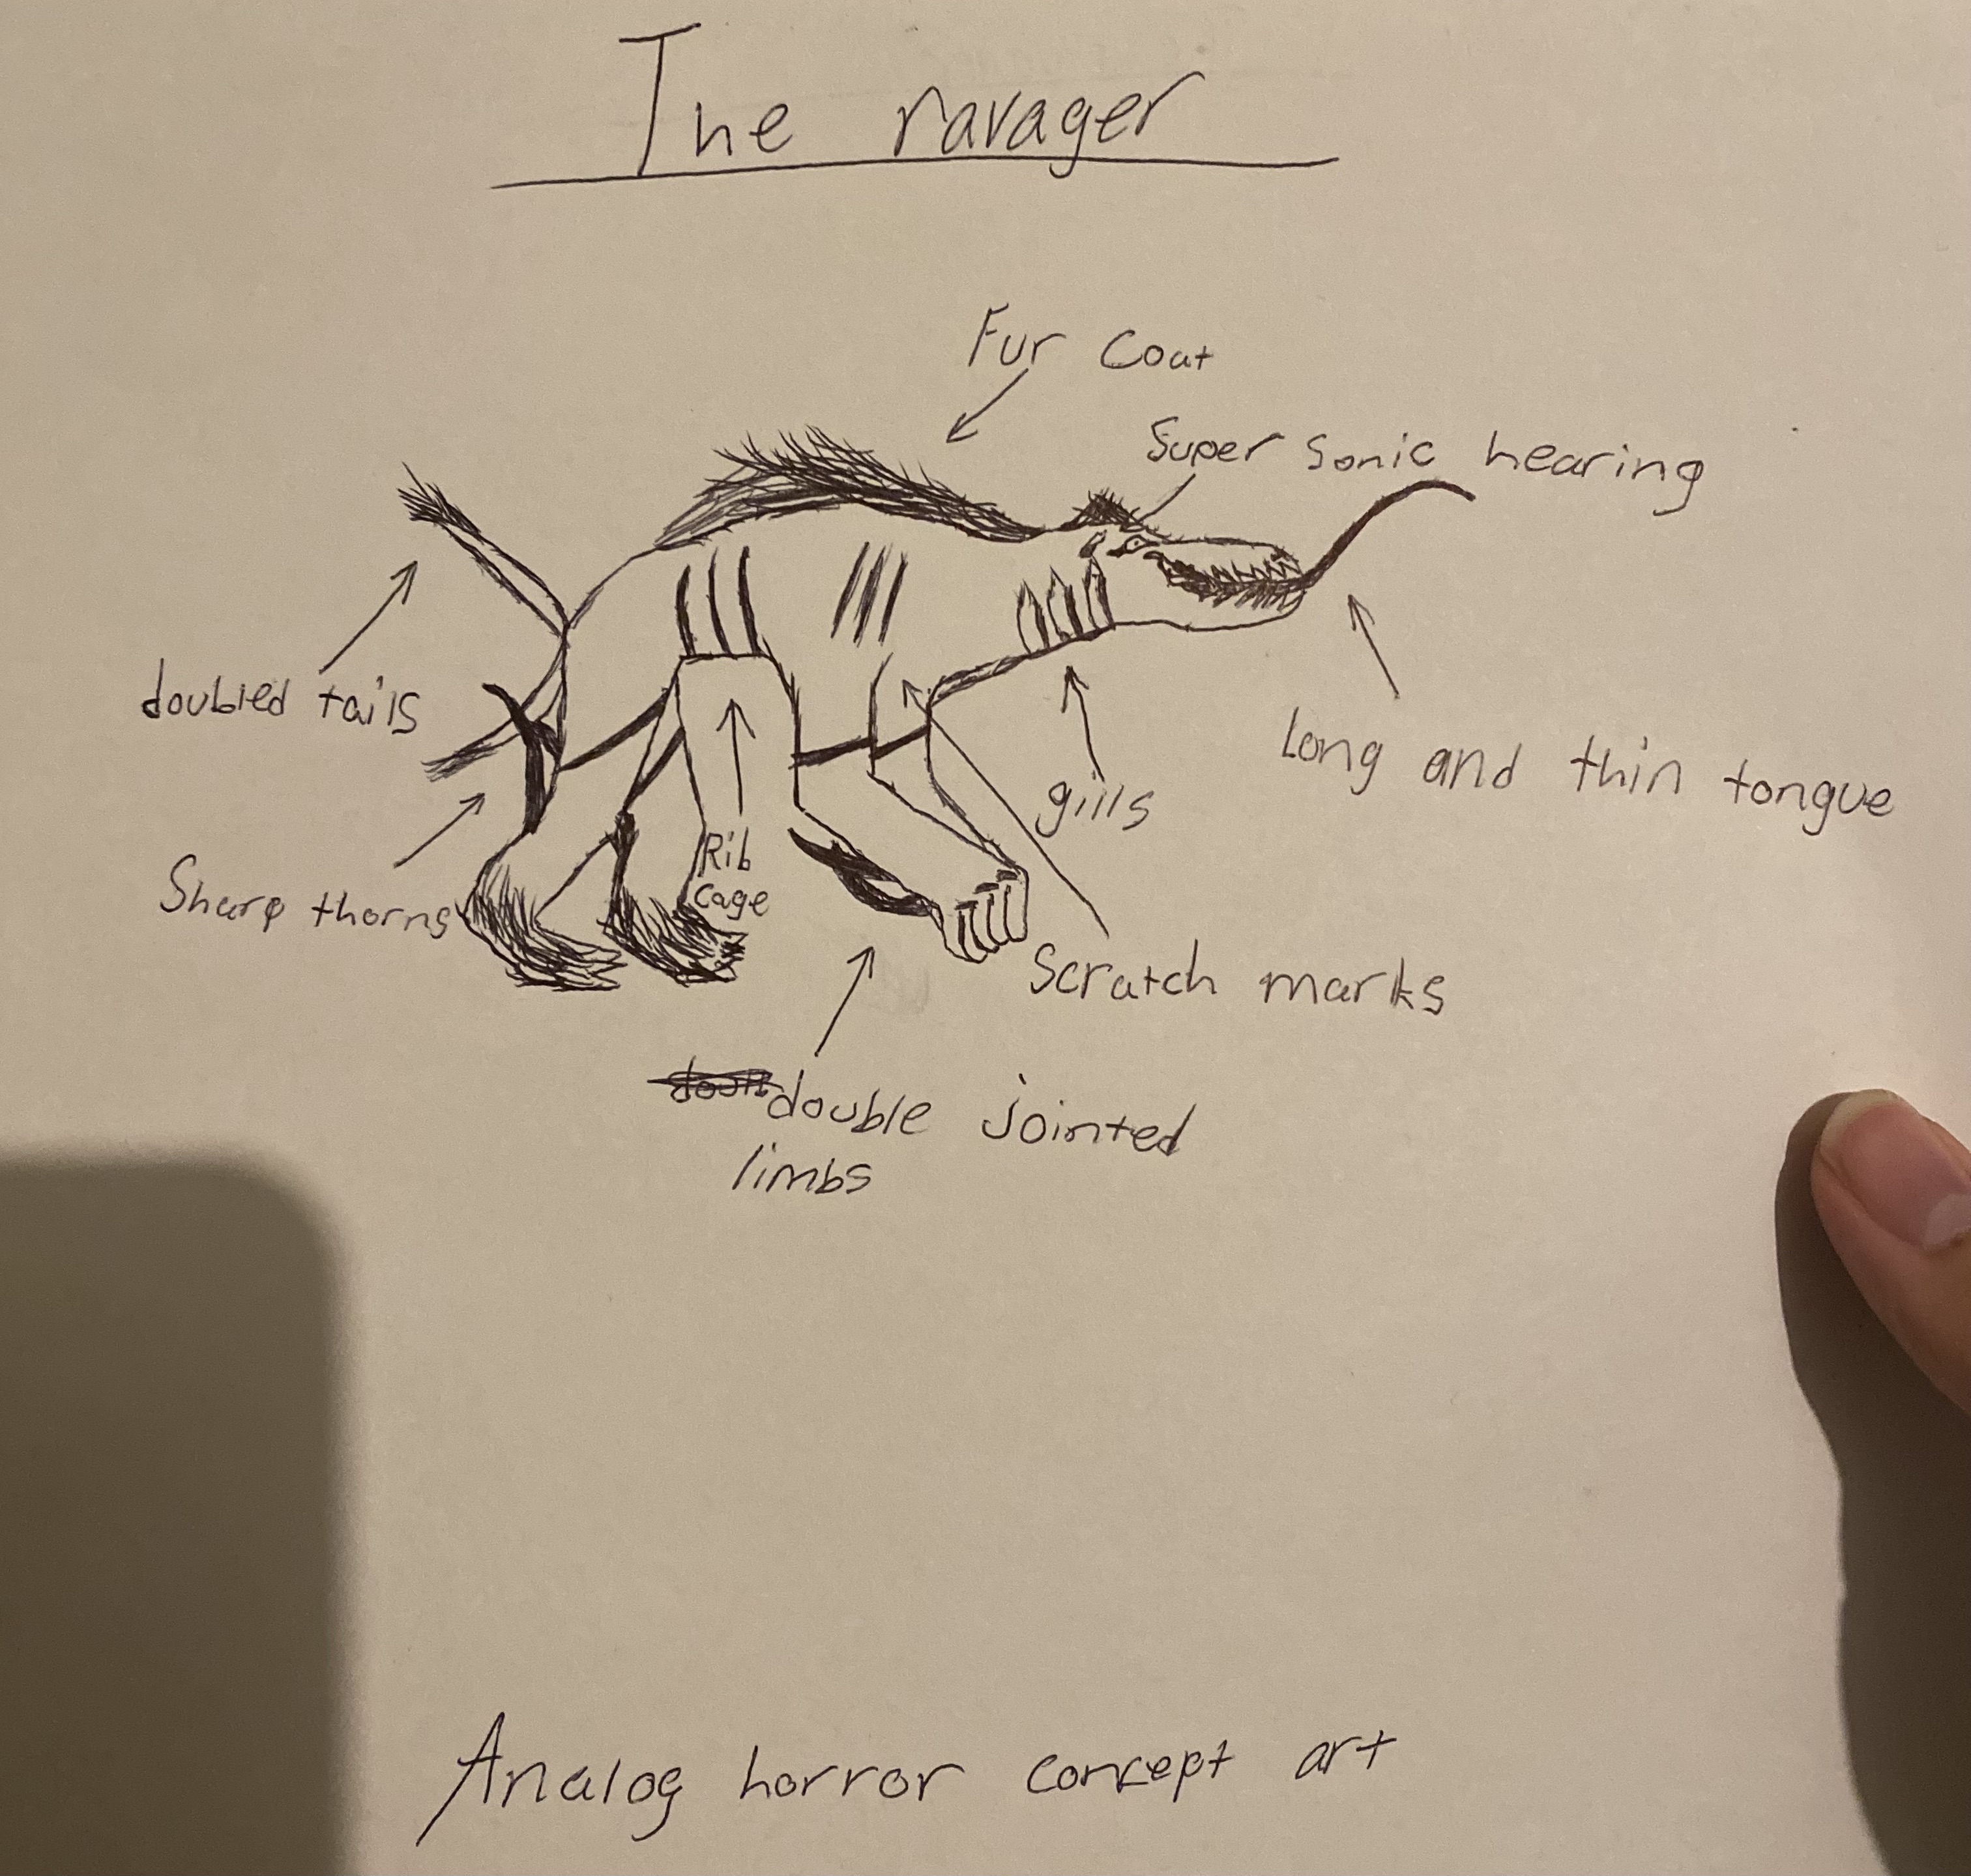 The ravager
Fur Coat
Super Sonic hearing
doubled tails
Long and thin tongue
gills
Sharp thorns
Rib
cage
Scratch marks
double jointed
limbs
Analog horror concept art